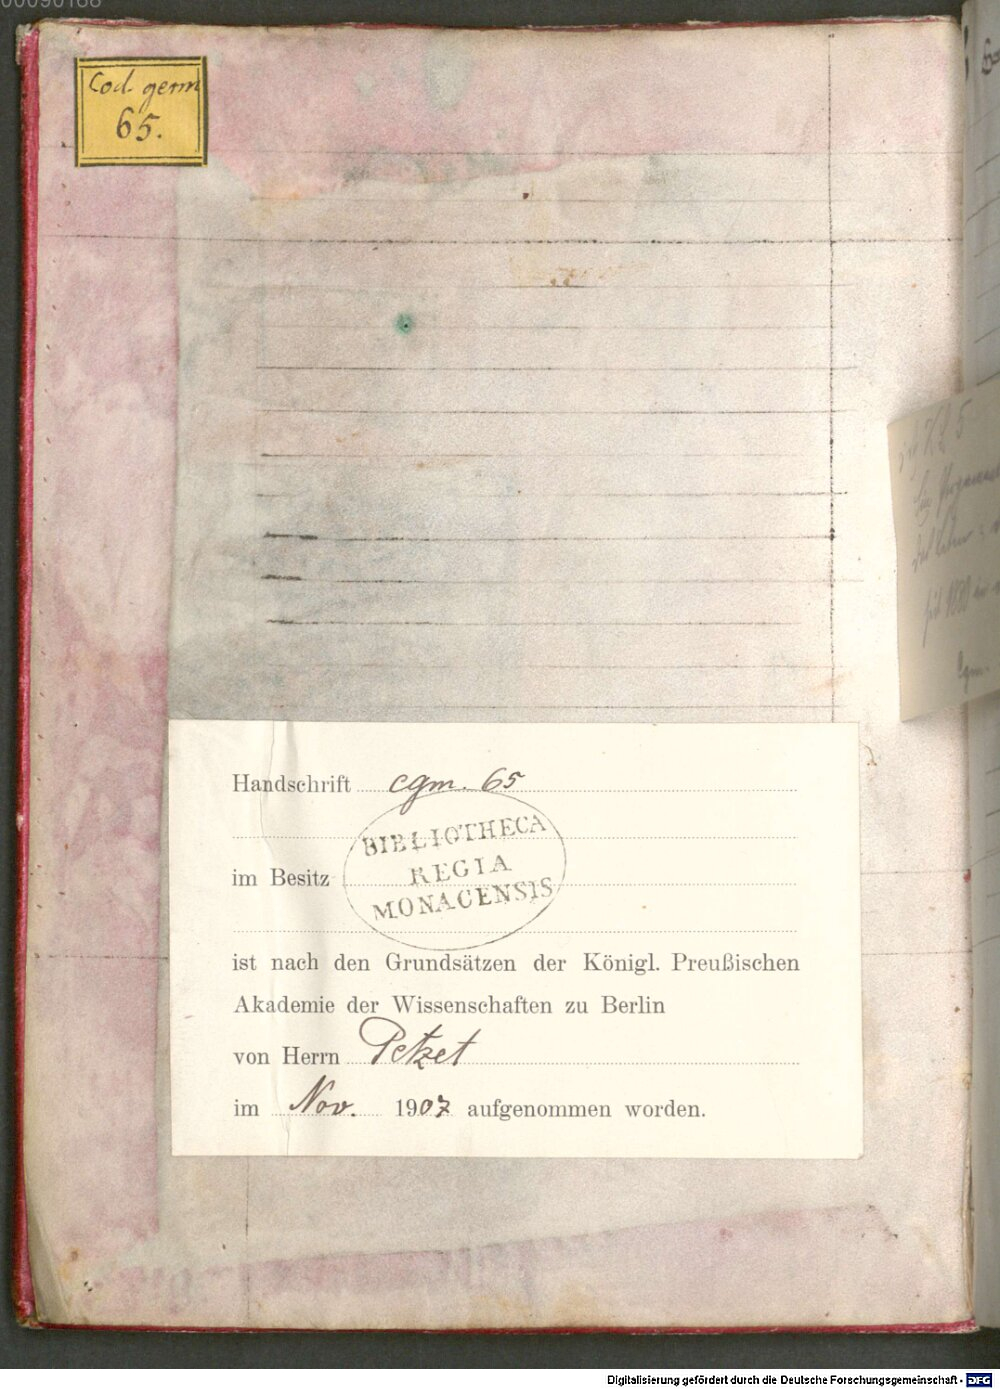 00090168
Cod. germ
65.
Handschrift cgm. 65
BIBLIOTHECA
REGIA
MONACENSIS
im Besitz
ist nach den Grundsätzen der Königl. Preußischen
Akademie der Wissenschaften zu Berlin
von Herrn Petzet
im Nov. 1907 aufgenommen worden.
5
Cgm.
Digitalisierung gefördert durch die Deutsche Forschungsgemeinschaft - DFG